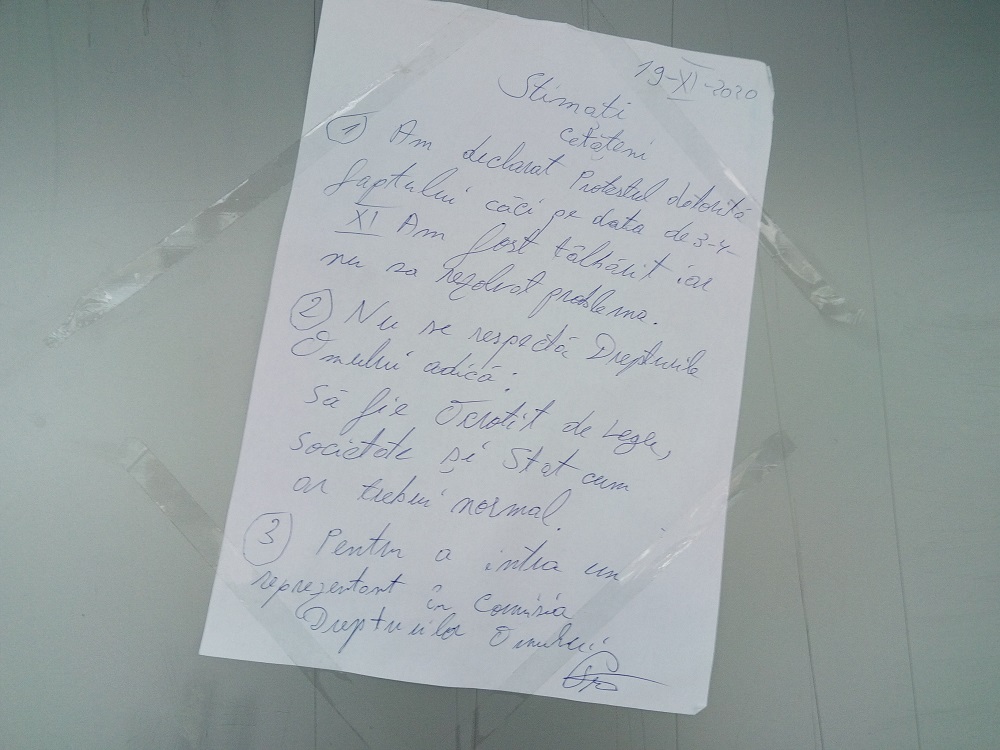 19-XI-2020
Stimați
Cetățeni
① Am declarat Protestul datorită
faptului căci pe data de 3-4-
XI Am fost tâlhărit iar
nu sa rezolvat problema.
② Nu se respectă Drepturile
Omului adică:
Să fie Ocrotit de Lege,
societate și Stat cum
ar trebui normal.
③ Pentru a intra un
reprezentant în Comisia
Drepturilor Omului